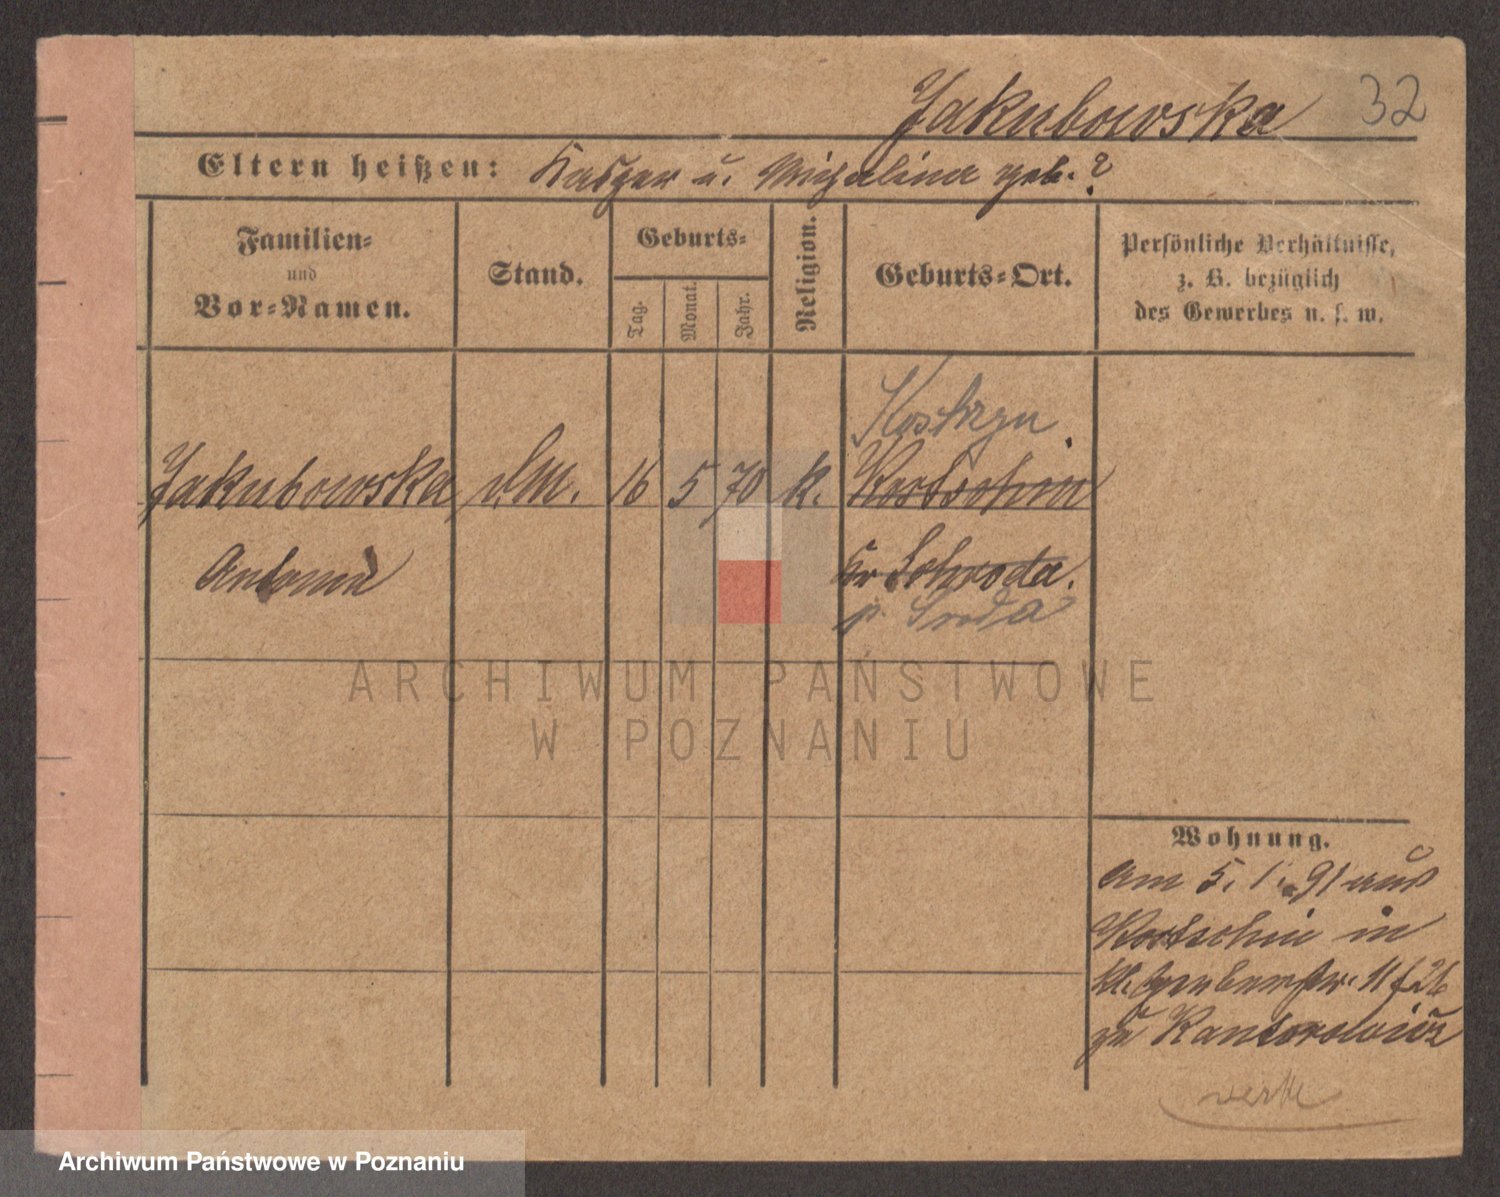 Jakubowska 32
Eltern heißen: Kasper u. Michalina geb. ?
Familien-
und
Vor-Namen.
Stand.
Geburts-
Tag.
Monat.
Jahr.
Religion.
Geburts-Ort.
Persönliche Verhältnisse,
z. B. bezüglich
des Gewerbes u. s. w.
Kostrzyn
Jakubowska dM. 16 5 70 k. Kostschin
Antonie Kr Schroda.
p. Środa
ARCHIWUM PAŃSTWOWE
W POZNANIU
Wohnung.
Am 5. 1. 91 aus
Kostschin in
Kl. 11 f 26
zu Kantorowicz
Archiwum Państwowe w Poznaniu